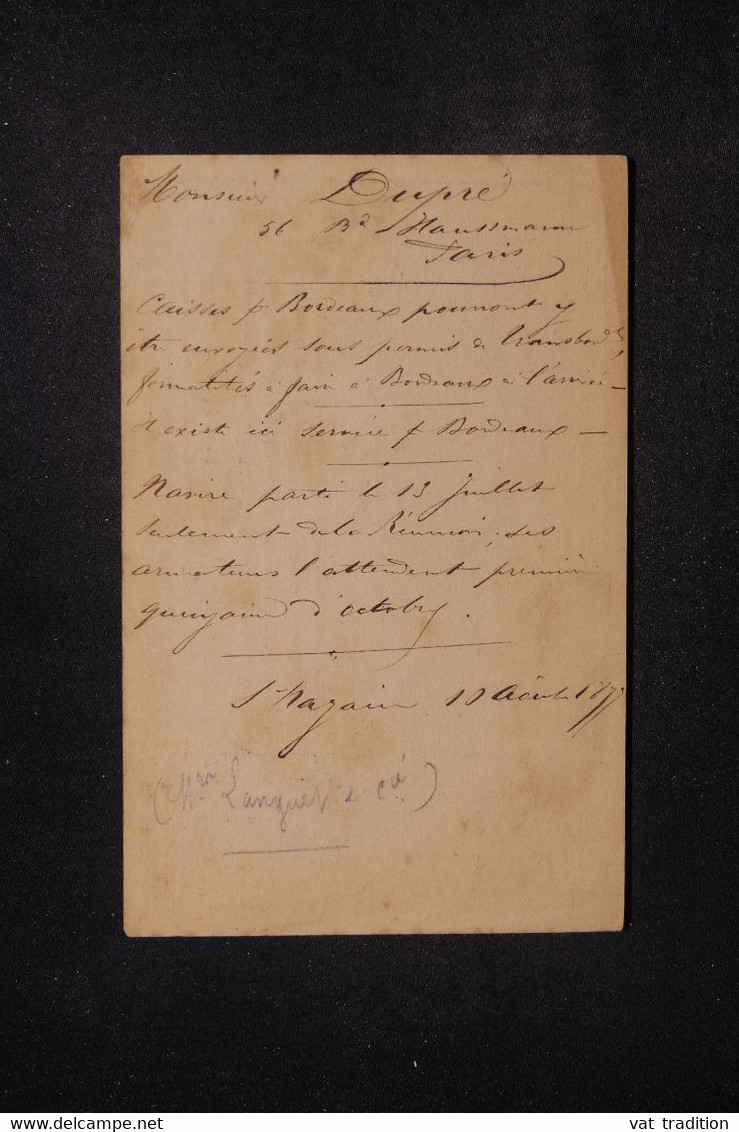 Monsieur Dupré
56 Bd Haussmann
Paris
Caisses p Bordeaux pourront y
être envoyées sous permis de transbordt,
formalités à faire à Bordeaux à l'arrivée –
il existe ici service p Bordeaux –
Navire parti le 13 Juillet
seulement de la Réunion, ses
armateurs l'attendent première
quinzaine d'octobre.
St Nazaire 10 Août 1877
(Mson Languet & Cie)
vat tradition